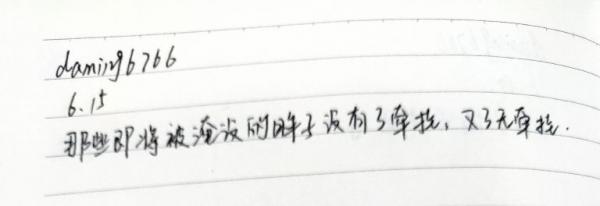 daming6766
6.15
那些即将被淹没的眸子没有了牵挂，又了无牵挂.